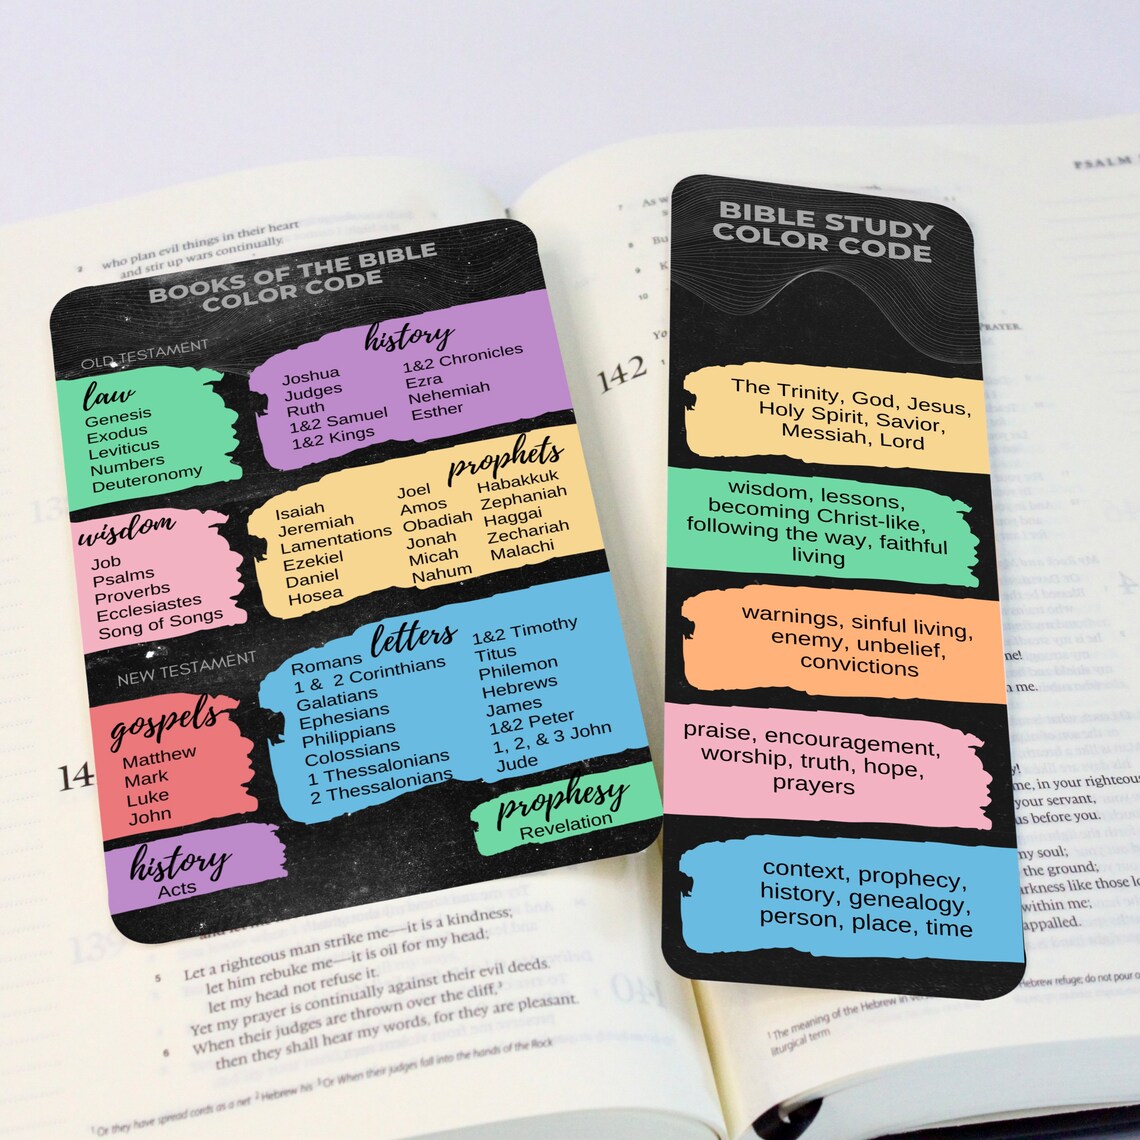 BOOKS OF THE BIBLE
COLOR CODE
OLD TESTAMENT
law
Genesis
Exodus
Leviticus
Numbers
Deuteronomy
history
Joshua
Judges
Ruth
1&2 Samuel
1&2 Kings
1&2 Chronicles
Ezra
Nehemiah
Esther
wisdom
Job
Psalms
Proverbs
Ecclesiastes
Song of Songs
prophets
Isaiah
Jeremiah
Lamentations
Ezekiel
Daniel
Hosea
Joel
Amos
Obadiah
Jonah
Micah
Nahum
Habakkuk
Zephaniah
Haggai
Zechariah
Malachi
NEW TESTAMENT
gospels
Matthew
Mark
Luke
John
letters
Romans
1 & 2 Corinthians
Galatians
Ephesians
Philippians
Colossians
1 Thessalonians
2 Thessalonians
1&2 Timothy
Titus
Philemon
Hebrews
James
1&2 Peter
1, 2, & 3 John
Jude
history
Acts
prophesy
Revelation
BIBLE STUDY
COLOR CODE
The Trinity, God, Jesus,
Holy Spirit, Savior,
Messiah, Lord
wisdom, lessons,
becoming Christ-like,
following the way, faithful
living
warnings, sinful living,
enemy, unbelief,
convictions
praise, encouragement,
worship, truth, hope,
prayers
context, prophecy,
history, genealogy,
person, place, time
2 who plan evil things in their heart
and stir up wars continually.
14
it is a kindness;
5 Let a righteous man strike me—it is a kindness;
let him rebuke me—it is oil for my head;
let my head not refuse it.
Yet my prayer is continually against their evil deeds.
6 When their judges are thrown over the cliff,³
then they shall hear my words, for they are pleasant.
¹Or they have spread cords as a net ²Hebrew his ³Or When their judges fall into the hands of the Rock
PSALM
7 As
8 Bu
9 K
10
PRAYER
142
me!
me.
me, in your righteous
your servant,
us before you.
my soul;
the ground;
arkness like those lo
within me;
appalled.
Hebrew refuge; do not pour
¹The meaning of the Hebrew
liturgical term